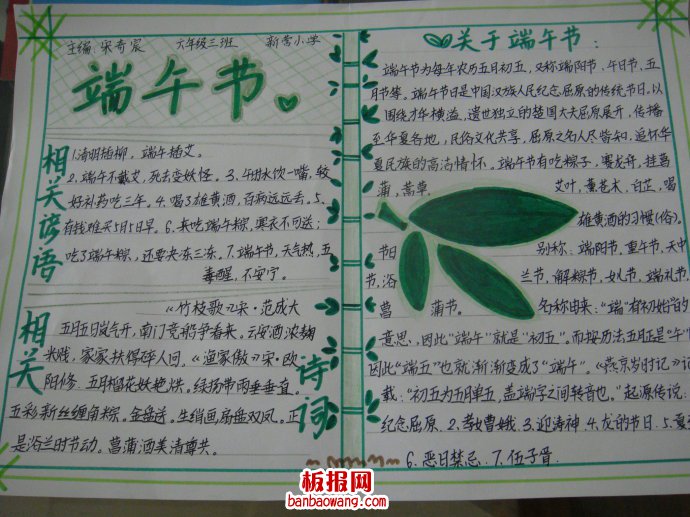 主编:宋奇宸 六年级三班 新营小学
端午节
相关谚语
1.清明插柳,端午插艾。
2.端午不戴艾,死去变妖怪。3.午时水饮一嘴,较
好补药吃三年。4.喝了雄黄酒,百病远远丢。5.
有钱难买5月5日旱。6.未吃端午粽,寒衣不可送;
吃了端午粽,还要冻三冻。7.端午节,天气热,五
毒醒,不安宁。
相关诗词
《竹枝歌》宋·范成大
五月五日岚气开,南门竞船争看来。云安酒浓麹
米贱,家家扶得碎人回。《渔家傲》宋·欧
阳修.五月榴花妖艳烘。绿杨带雨垂垂直。
五彩新丝缠角粽。金盘送。生绡画扇盘双凤。正
是浴兰时节动。菖蒲酒美清尊共。
关于端午节:
端午节为每年农历五月初五,又称端阳节,午日节、五
月节等。端午节日是中国汉族人民纪念屈原的传统节日,以
围绕才华横溢、遗世独立的楚国大夫屈原展开,传播
至华夏各地,民俗文化共享,屈原之名人尽皆知,追怀华
夏民族的高洁情怀,端午节有吃粽子,赛龙舟,挂菖
蒲,蒿草, 艾叶,薰苍术,白芷,喝
雄黄酒的习惯(俗)。
别称:端阳节,重午节,天中
节 兰节,解粽节,女儿节,端礼节,
节,浴
菖 蒲节。 名称由来:"端"有初始的
意思,因此"端午"就是"初五"。而按历法五月正是"午"
因此"端五"也就渐渐变成了"端午"。《燕京岁时记》记
载:"初五为五月单五,盖端字之间转音也。"起源传说:
纪念屈原.2.孝女曹娥.3.迎涛神.4.龙的节日.5.夏
6.恶日禁忌.7.伍子胥.
板报网
banbaowang.com